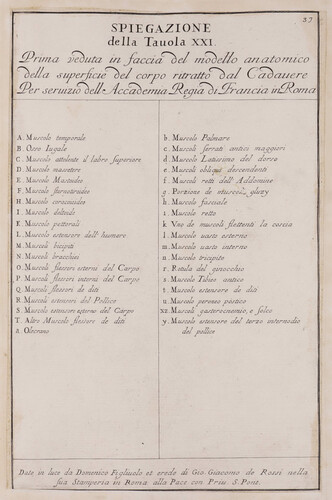 37
SPIEGAZIONE
della Tauola XXI.
Prima veduta in faccia del modello anatomico
della superficie del corpo ritratto dal Cadauere
Per seruizio dell'Accademia Regia di Francia in Roma
A. Muscolo temporale
B. Osso Iugale
C. Muscolo attolente il labro superiore
D. Muscolo massettere
E. Muscolo Mastoideo
F. Muscolo sternoiroideo
H. Muscolo coracoioideo
I. Muscolo deltoide
K. Muscolo pettorale
L. Muscolo estensore dell' humero
M. Muscoli bicipiti
N. Muscolo bracchiei
O. Muscolo flessore esterni del Carpo
P. Muscolo flessori interni del Carpo
Q. Muscoli flessori de diti
R. Muscoli estensori del Pollice
S. Muscolo estensori esterno del Carpo
T. Altro Muscolo flessore de diti
a. Olecrano
b. Muscolo Palmare
c. Muscoli serrati antici maggiori
d. Muscolo Latissimo del dorso
e. Muscoli obliqui descendenti
f. Muscoli retti dell' Addomine
g. Porzione de muscoli glutei
h. Muscolo fasciale
i. Muscolo retto
k. Vno de muscoli flettenti la coscia
l. Muscolo uasto esterno
m. Muscolo uasto interno
n. Muscolo tricipite
r. Rotula del ginocchio
s. Muscolo Tibieo antico
t. Muscolo estensore de diti
u. Muscolo peroneo postico
xz. Muscoli gasterocnemio, e soleo
y. Muscolo estensore del terzo internodio
del pollice
Data in luce da Domenico Figliuolo et erede di Gio. Giacomo de Rossi nella
sua Stamperia in Roma alla Pace con Priu. S. Pont.